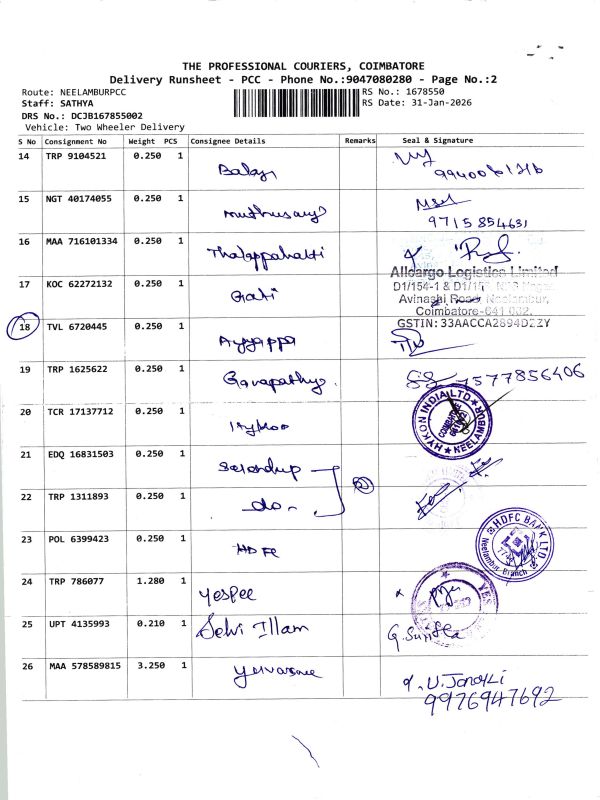 THE PROFESSIONAL COURIERS, COIMBATORE
Delivery Runsheet - PCC - Phone No.:9047080280 - Page No.:2
Route: NEELAMBURPCC RS No.: 1678550
Staff: SATHYA RS Date: 31-Jan-2026
DRS No.: DCJB167855002
Vehicle: Two Wheeler Delivery
S No Consignment No Weight PCS Consignee Details Remarks Seal & Signature
14 TRP 9104521 0.250 1 Balaji
15 NGT 40174055 0.250 1 muthusamy
9715854631
16 MAA 716101334 0.250 1 Thalappakatti
Allcargo Logistics Limited
17 KOC 62272132 0.250 1 Gati D1/154-1 & D1/15
Avinashi Road, Neelambur,
Coimbatore-641 062.
GSTIN: 33AACCA2894D2ZY
18 TVL 6720445 0.250 1 Ayyappa
19 TRP 1625622 0.250 1 Ganapathy 7577856406
20 TCR 17137712 0.250 1
HYKON INDIA LTD
COIMBATORE
NEELAMBUR
21 EDQ 16831503 0.250 1
22 TRP 1311893 0.250 1 -do-
23 POL 6399423 0.250 1 HDFC
HDFC BANK LTD
Neelambur Branch
24 TRP 786077 1.280 1 Yespee
25 UPT 4135993 0.210 1 Selvi Illam G. Sunitha
26 MAA 578589815 3.250 1 U. Janaki
9976947692